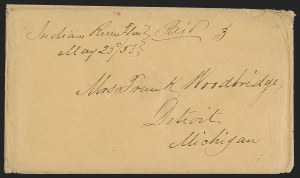 Indian River Flat Paid 3
May 25th 53
Mrs Frank Woodbridge,
Detroit.
Michigan